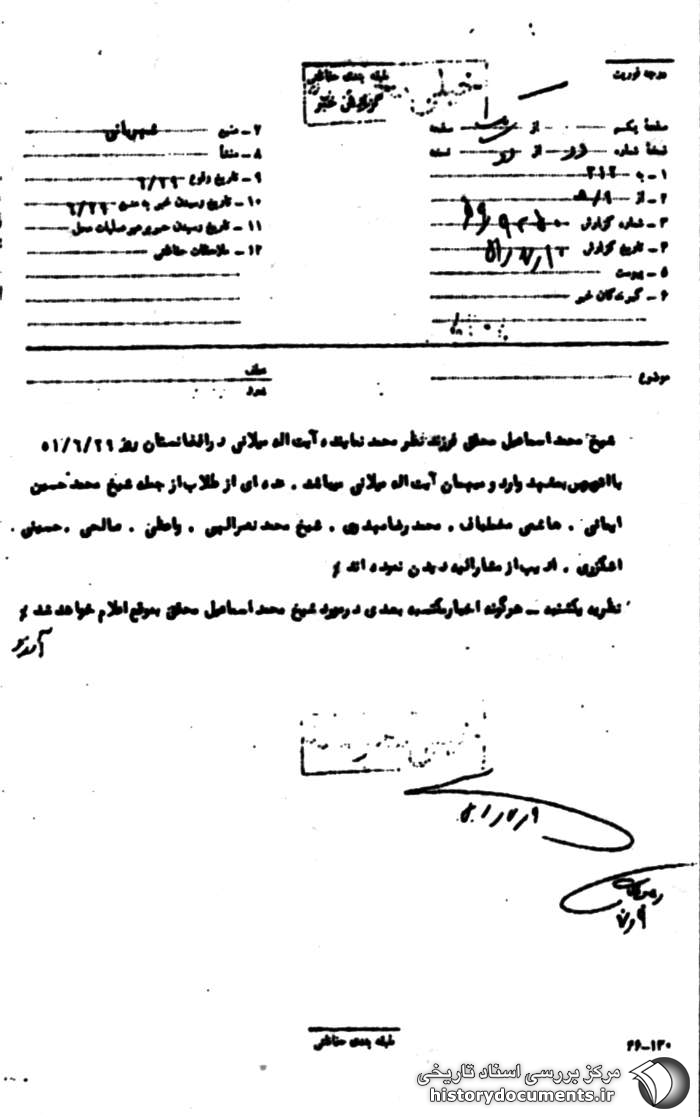 درجه فوریت
طبقه بندی حفاظتی
خیلی محرمانه
گزارش خبر
صفحه یکم از یک صفحه
نسخه شماره دو از دو نسخه
۱ - به ۳۱۲
۲ - از ۹ﻫ
۳ - شماره گزارش
۴ - تاریخ گزارش
۵ - پیوست
۶ - گیرندگان خبر
۷ - منبع شهربانی
۸ - منشأ
۹ - تاریخ وقوع ۶/۲۹
۱۰ - تاریخ رسیدن خبر به منبع ۶/۲۹
۱۱ - تاریخ رسیدن خبر به رهبر عملیات محل
۱۲ - ملاحظات حفاظتی
موضوع
عطف
شیخ محمد اسماعیل محقق فرزند نظر محمد نماینده آیت اله میلانی در افغانستان روز ۵۱/۶/۲۹
با اتوبوس بمشهد وارد و میهمان آیت اله میلانی میباشد . عده ای از طلاب از جمله شیخ محمد حسین
ایمانی . هاشمی . محمد رضا مهدوی . شیخ محمد نصرالهی . واعظی . صالحی . حسینی .
اشکوری . ادیب از مشارالیه دیدن نموده اند
نظریه یکشنبه - هرگونه اخبار مکتسبه بعدی در مورد شیخ محمد اسماعیل محقق بموقع اعلام خواهد شد
خیلی محرمانه
طبقه بندی حفاظتی
۲۶-۱۳۰
مرکز بررسی اسناد تاریخی
historydocuments.ir